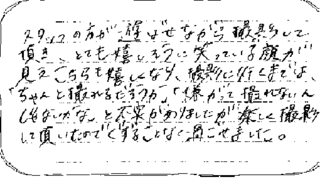 スタッフの方が遊ばせながら撮影して
頂き、とても嬉しそうに笑っている顔が
見えこちらも嬉しくなり、撮影に行くまでは、
「ちゃんと撮れるだろうか」「嫌がって撮れないん
じゃないかな」と不安がありましたが楽しく撮影
して頂いたのでぐずることなく過ごせました。